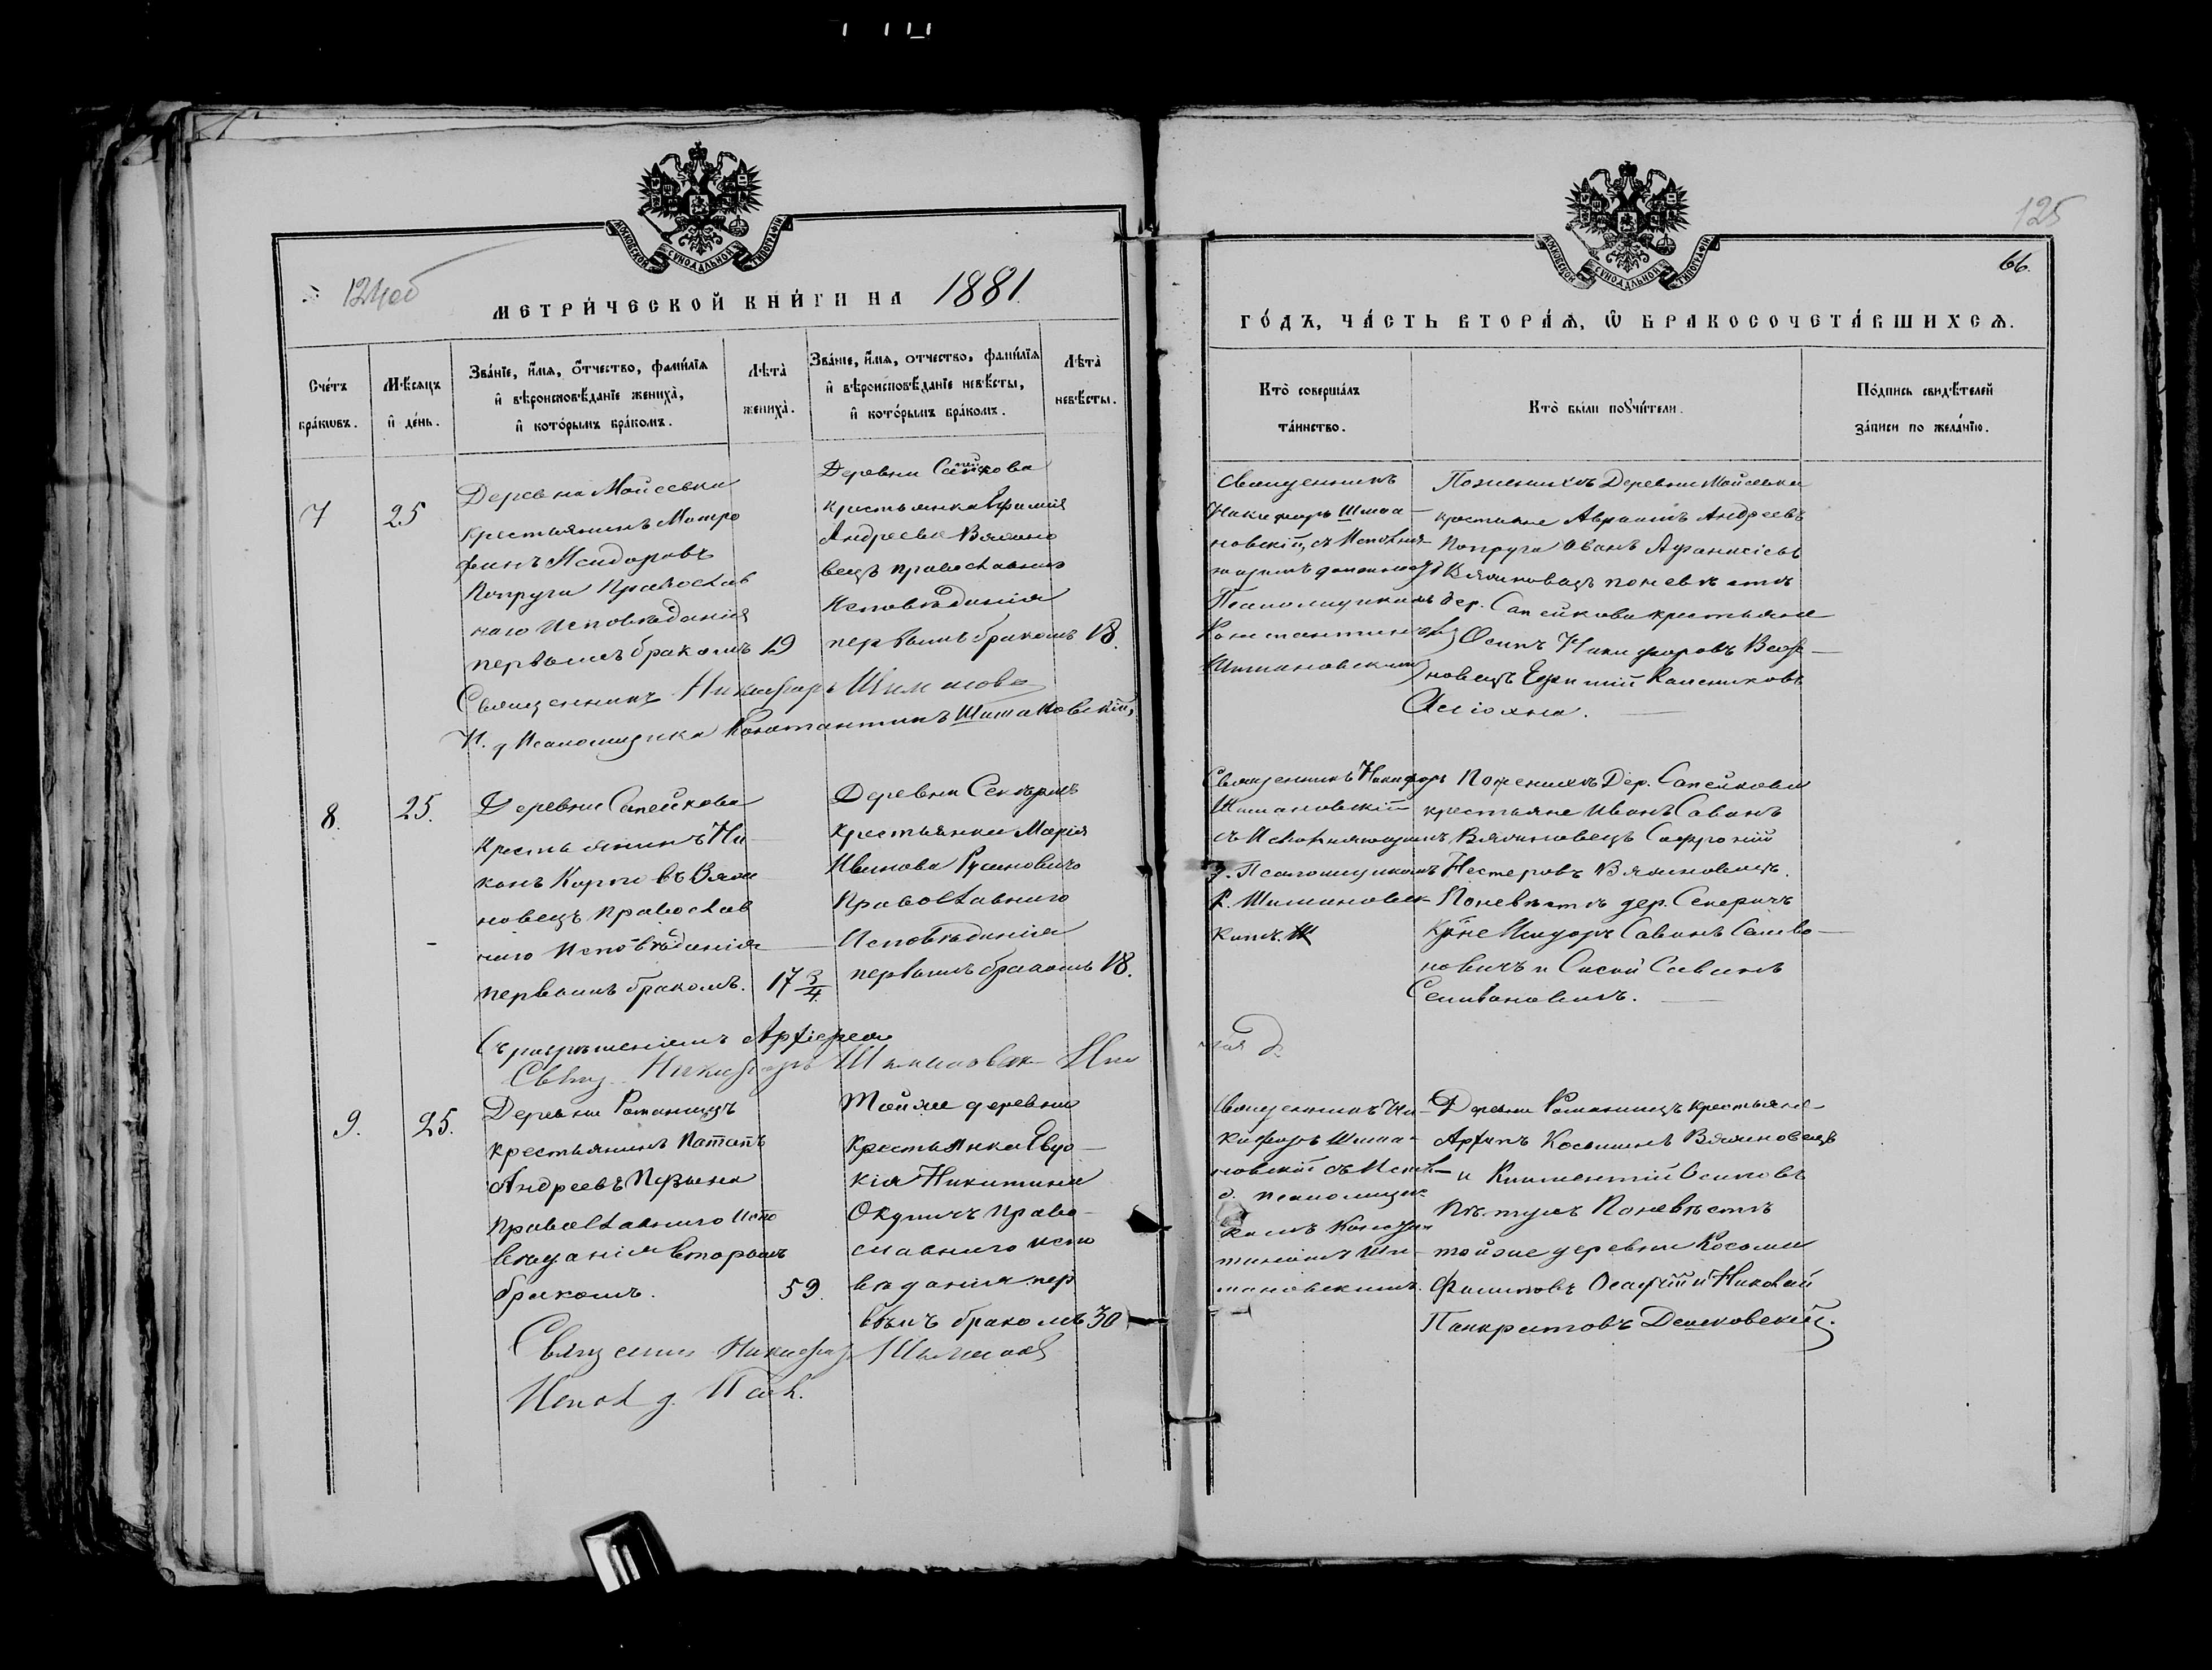 124об
МЕТРИ́ЧЕСКОЙ КНИ́ГИ НА 1881
Сче́тъ бра́кѡвъ.
Мѣ́сяцъ и҆ де́нь.
Зва́нїе, и҆́мя, ѻ҆́тчество, фами́лїя
и҆ вѣроисповѣ́данїе жениха̀,
и҆ кото́рымъ бра́комъ.
Лѣта̀ жениха̀.
Зва́нїе, и҆́мя, отчество, фами́лїя
и҆ вѣроисповѣ́данїе невѣ́сты,
и҆ кото́рымъ бра́комъ.
Лѣта̀ невѣ́сты.
7
25
Деревни Мойсеевки
крестьянинъ Митро
фанъ Исидоровъ
Попруга Православ
наго исповѣданія
первымъ бракомъ 19
Деревни Сапейкова
крестьянка Ефимія
Андреева Вялино
вецъ православнаго
Исповѣданія
первымъ бракомъ 18.
Священникъ Никифоръ Шиманов
И. д Псаломщика Константинъ Шимановскій
8.
25.
Деревни Сапейкова
Крестьянинъ Ни
конъ Карповъ Вяли
новецъ Православ
наго Исповѣданія
первымъ бракомъ. 17 3/4
Деревни Секеричъ
крестьянка Марія
Иванова
Православнаго
Исповѣданія
первымъ бракомъ 18.
Съ разрѣшеніемъ Архіерея
Свящ. Никифоръ Шимановск
9.
25.
Деревни Романищъ
крестьянинъ Потапъ
Андреевъ
православнаго испо
вѣданія вторымъ
бракомъ. 59.
Той же деревни
Крестьянка Евдо
кія Никитина
Окуличъ право
славнаго испо
вѣданія пер
вымъ бракомъ 30
Священникъ Никифоръ Шиманов
Испол д. Псал.
125
66.
ГО́ДЪ, ЧА́СТЬ ВТОРА́Ѧ, Ѽ БРАКОСОЧЕТА́ВШИХСѦ.
Кто̀ соверша́лъ та́инство.
Кто̀ бы́ли порꙋчи́тели.
По́дпись свидѣ́телей за́писи по жела́нїю.
Священникъ
Никифоръ Шима
новскій, съ Исполня
ющимъ должность
Псаломщикомъ
Константиномъ
Шимановскимъ
По женихѣ Деревни Мойсеевки
крестьяне Авраамъ Андреевъ
Попруга Иванъ Афанасіевъ
Вялиновецъ по невѣстѣ
дер. Сапейкова крестьяне
Осипъ Никифоровъ Вяли
новецъ Ефимій Калениковъ
Священникъ Никифоръ
Шимановскій
съ Исполняющимъ
д. Псаломщикомъ
К. Шимановск
имъ.
По женихѣ Дер. Сапейкова
крестьяне Иванъ Савинъ
Вялиновецъ Софроній
Нестеровъ Вялиновецъ.
По невѣстѣ дер. Секеричъ
Кр̃не Исидоръ Савинъ Селиво
новичъ и Сысой Савинъ
Селивановичъ.
Священникъ Ни
кифоръ Шима
новскій съ Испол
д. псаломщик
омъ Констан
тиномъ Ши
мановскимъ.
Деревни Романищъ крестьяне
Архипъ Косминъ Вялиновецъ
и Климентій Осиповъ
По невѣстѣ
той же деревни Косьма
Филиповъ и Николай
Панкратовъ Дешковскій.